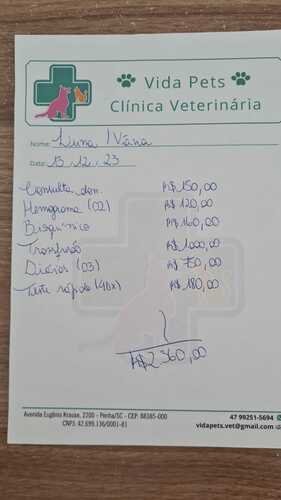 Vida Pets
Clínica Veterinária
Nome: Luna / Vânia
Data: 13.12.23
Consulta dom. R$ 150,00
Hemograma (02) R$ 120,00
Bioquímico R$ 160,00
Transfusão R$ 1000,00
Diárias (03) R$ 750,00
Teste rápido (4Dx) R$ 180,00
R$ 2360,00
Avenida Eugênio Krause, 2200 - Penha/SC - CEP: 88385-000
CNPJ: 42.699.136/0001-81
47 99251-5694
vidapets.vet@gmail.com